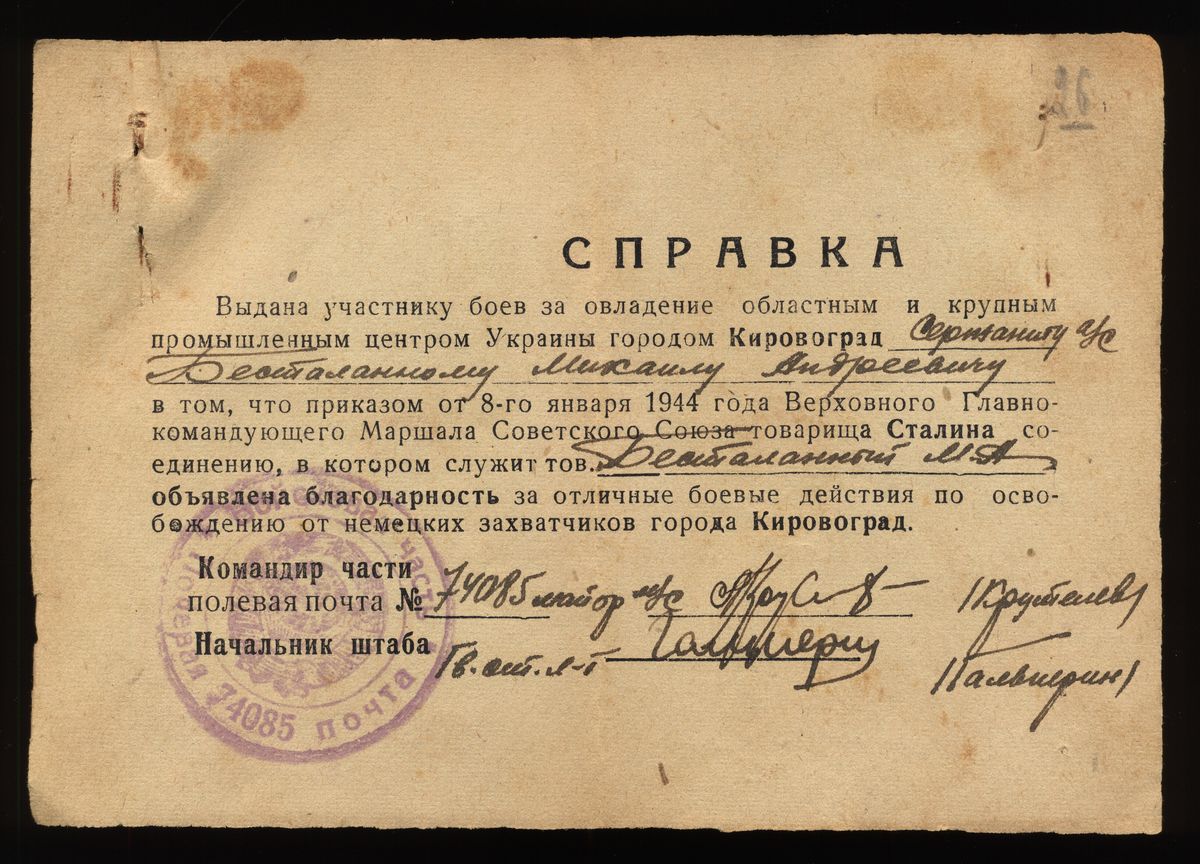 26
СПРАВКА
Выдана участнику боев за овладение областным и крупным
промышленным центром Украины городом Кировоград Сержанту а/с
Бесталанному Михаилу Андреевичу
в том, что приказом от 8-го января 1944 года Верховного Главно-
командующего Маршала Советского Союза товарища Сталина со-
единению, в котором служит тов. Бесталанный М.А
объявлена благодарность за отличные боевые действия по осво-
бождению от немецких захватчиков города Кировоград.
Командир части
полевая почта № 74085 майор
Начальник штаба Гв. ст. л-т Гальперин /Гальперин/
Полевая почта 74085 части